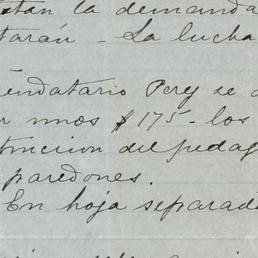 están la demanda
tarán - La lucha
endatario Perez se
r unos $175 - los
trucción del pedag
paredones.
En hoja separad